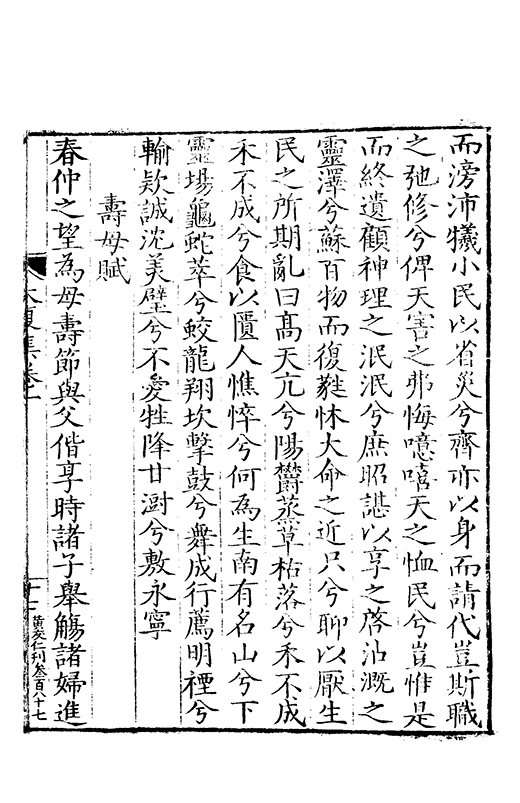 而滂沛犧小民以省災兮齊亦以身而請代豈斯職
之弛修兮俾天害之弗悔噫嘻天之恤民兮豈惟是
而終遺顧神理之泯泯兮庶昭諶以享之啓沾溉之
靈澤兮蘇百物而復蕤怵大命之近只兮聊以厭生
民之所期亂曰高天亢兮陽欝蒸草枯落兮禾不成
禾不成兮食以匱人憔悴兮何為生南有名山兮下
靈場龜蛇萃兮蛟龍翔坎擊鼓兮舞成行薦明禋兮
輸欵誠沈美璧兮不愛牲降甘澍兮敷永寧
壽母賦
春仲之望為母壽節與父偕享時諸子舉觴諸婦進
大復集卷一
十一
黃奕仁刊叁百八十七